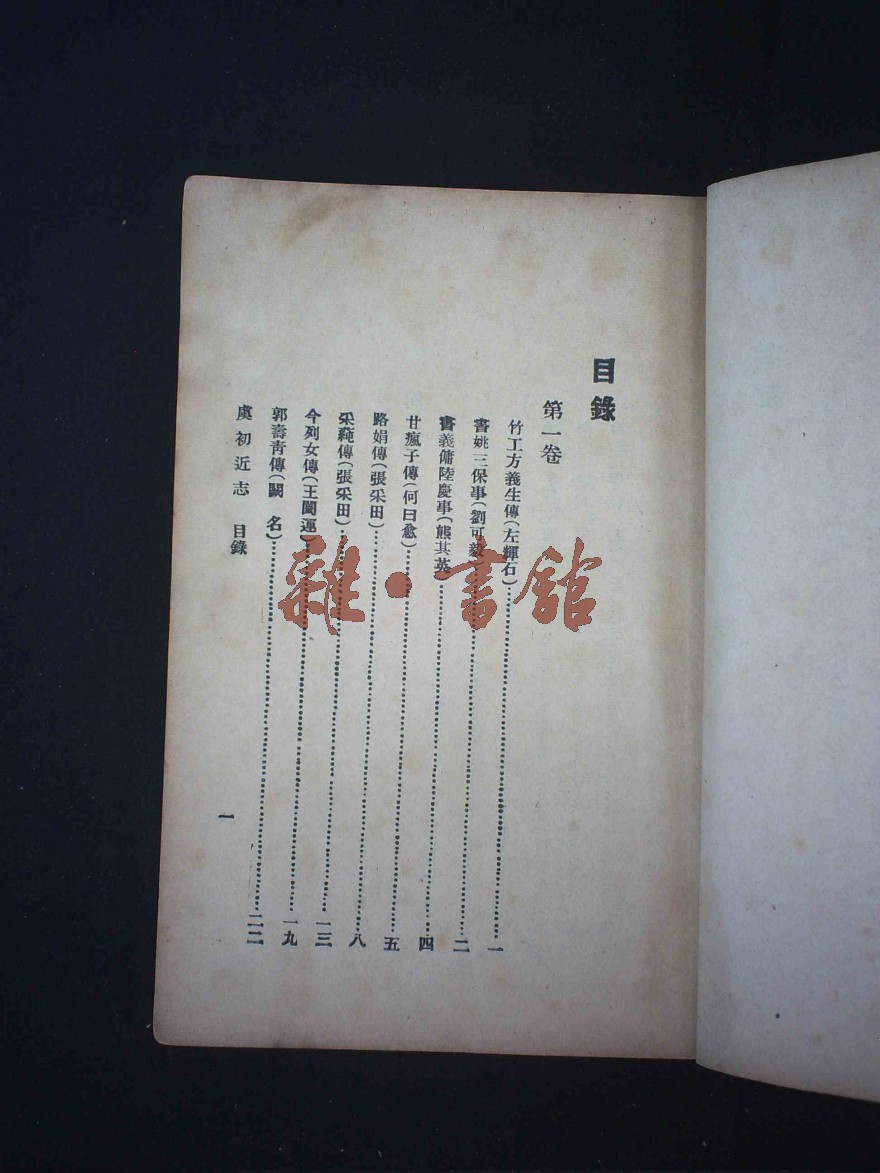 目錄
第一卷
竹工方義生傳(左輝石)……一
書姚三保事(劉可毅)……二
書義傭陸慶事(熊其英)……四
甘瘋子傳(何曰愈)……五
路娟傳(張采田)……八
采蒓傳(張采田)……一三
今列女傳(王闓運)……一九
郭壽青傳(闕 名)……二二
虞初近志 目錄
一
雜·書館